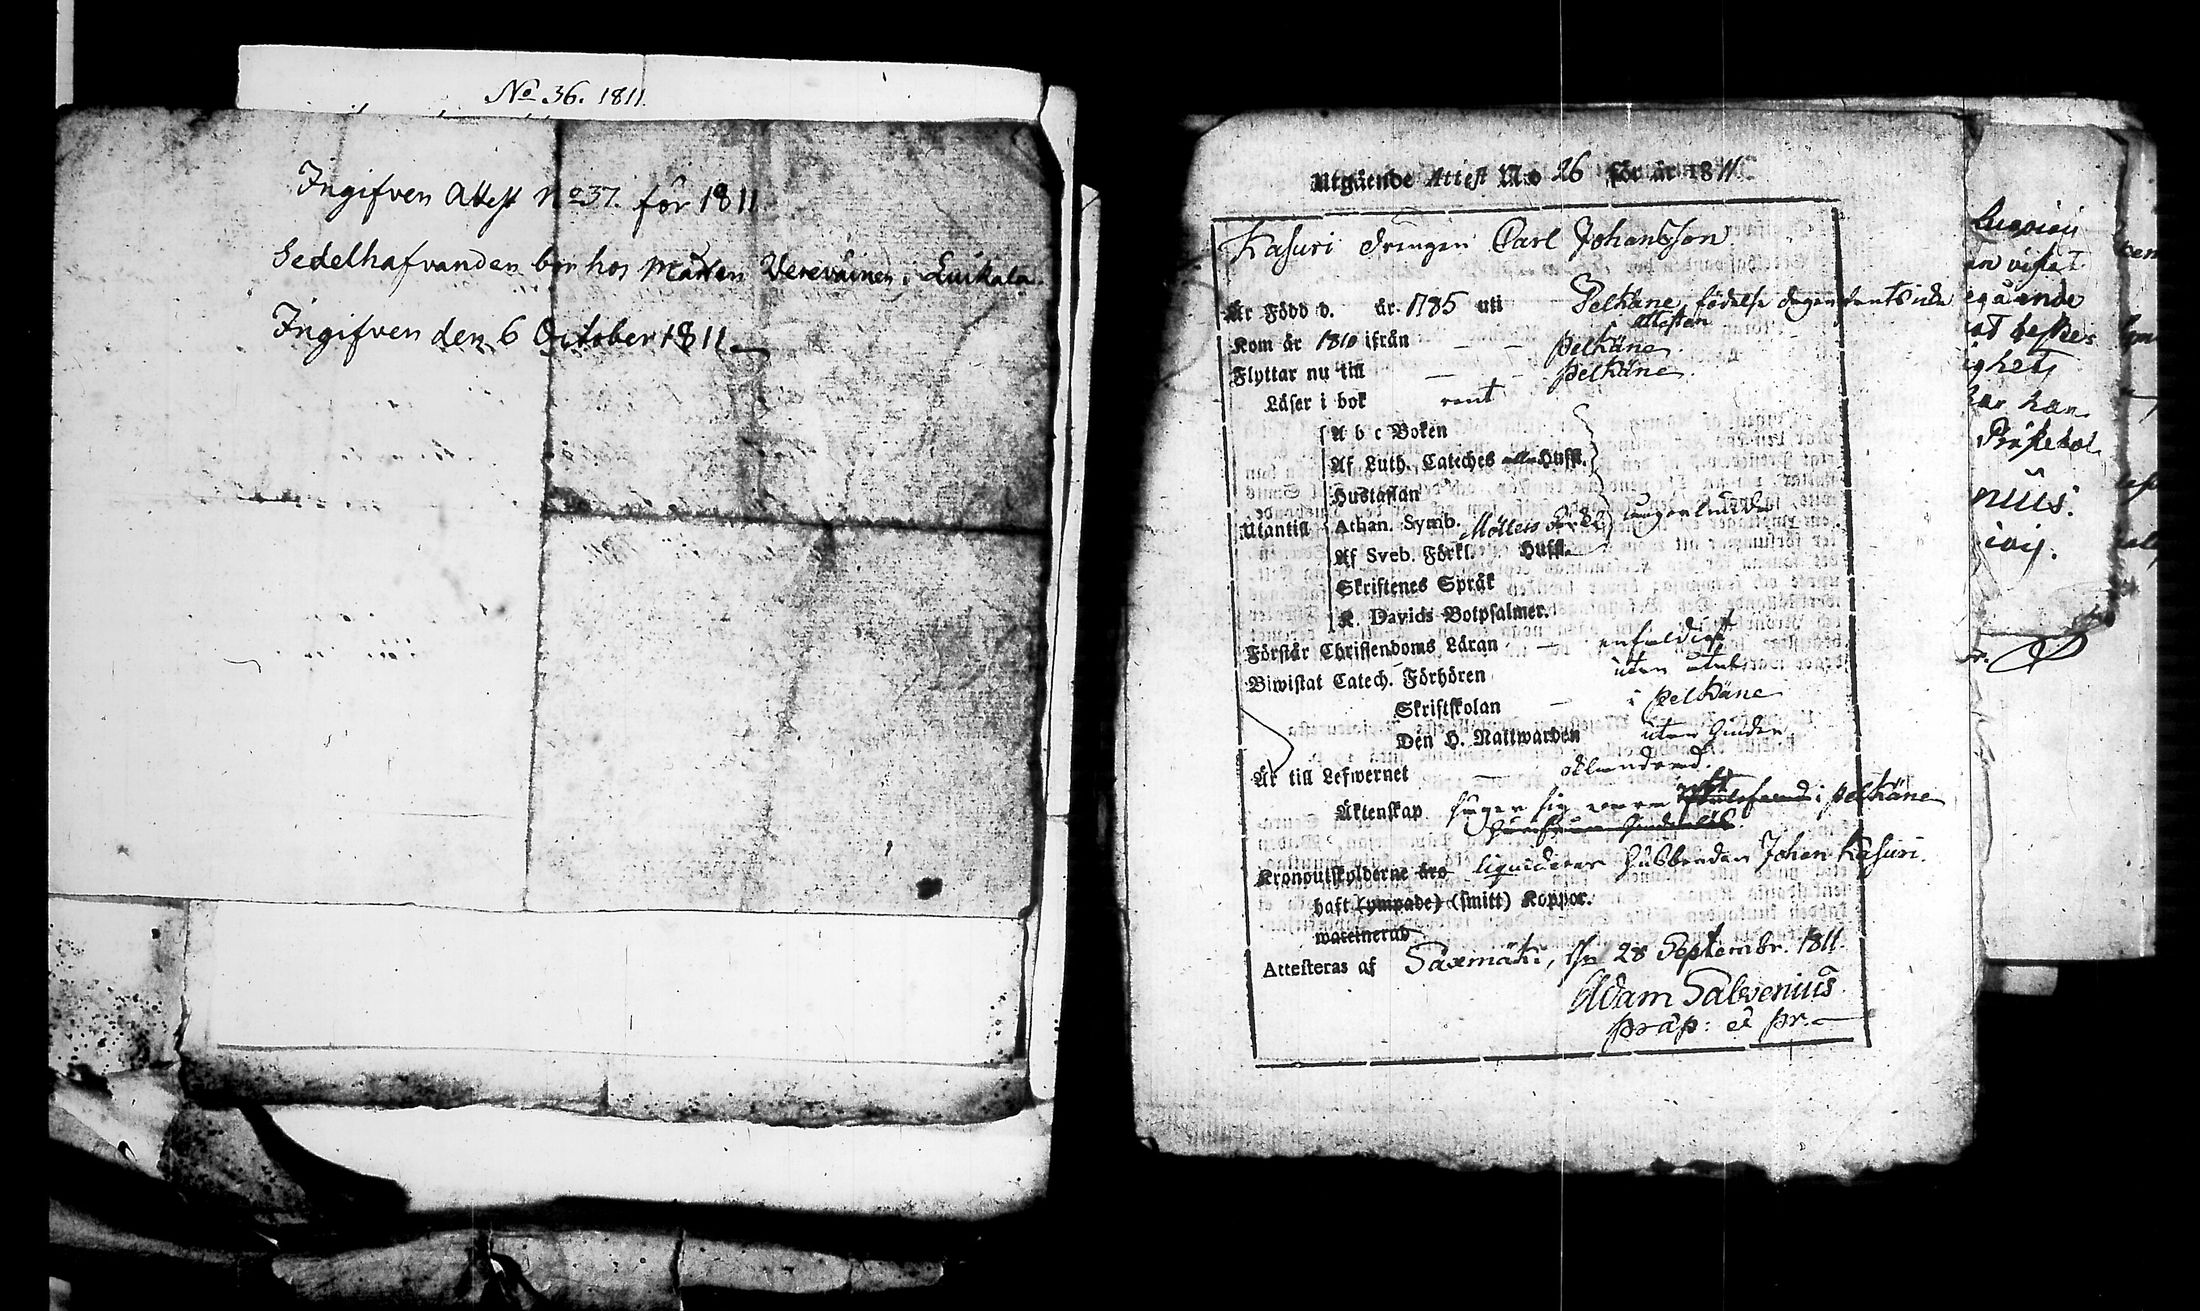 No 36. 1811.
Ingifven Attest No 37. för 1811
Sedelhafvanden bor hos Matten Verevainen i Luikala.
Ingifven den 6 October 1811.
Utgående Attest N:o 26 för år 1811
Kasuri drengen Carl Johansson
Är Född d. år 1785 uti Pelkäne, födelse dagen
attesten
Kom år 1810 ifrån Pelkäne
Flyttar nu till Pelkäne.
Läser i bok rent
A b c Boken
Af Luth. Cateches Hufst.
Hustaflan
Utantill Athan. Symb. Möllers
Af Sveb. Förkl. Hufst.
Skriftenes Språk
K. Davids Botpsalmer.
Förstår Christendoms Läran enfaldigt
Biwistat Catech. Förhören utan
Skriftskolan i Pelkäne
Den H. Nattwarden utan hinder
Är till Lefwernet oklandrad.
Äktenskap säger sig i Pelkäne
Kronoutskylderne äro liquiderar husbonden Johan Kasuri.
haft (ympade) (smitt) Koppor.
waccinerad
Attesteras af Saxmäki, d. 28 Septembr. 1811
Adam Salovenius
præp: et Pr.